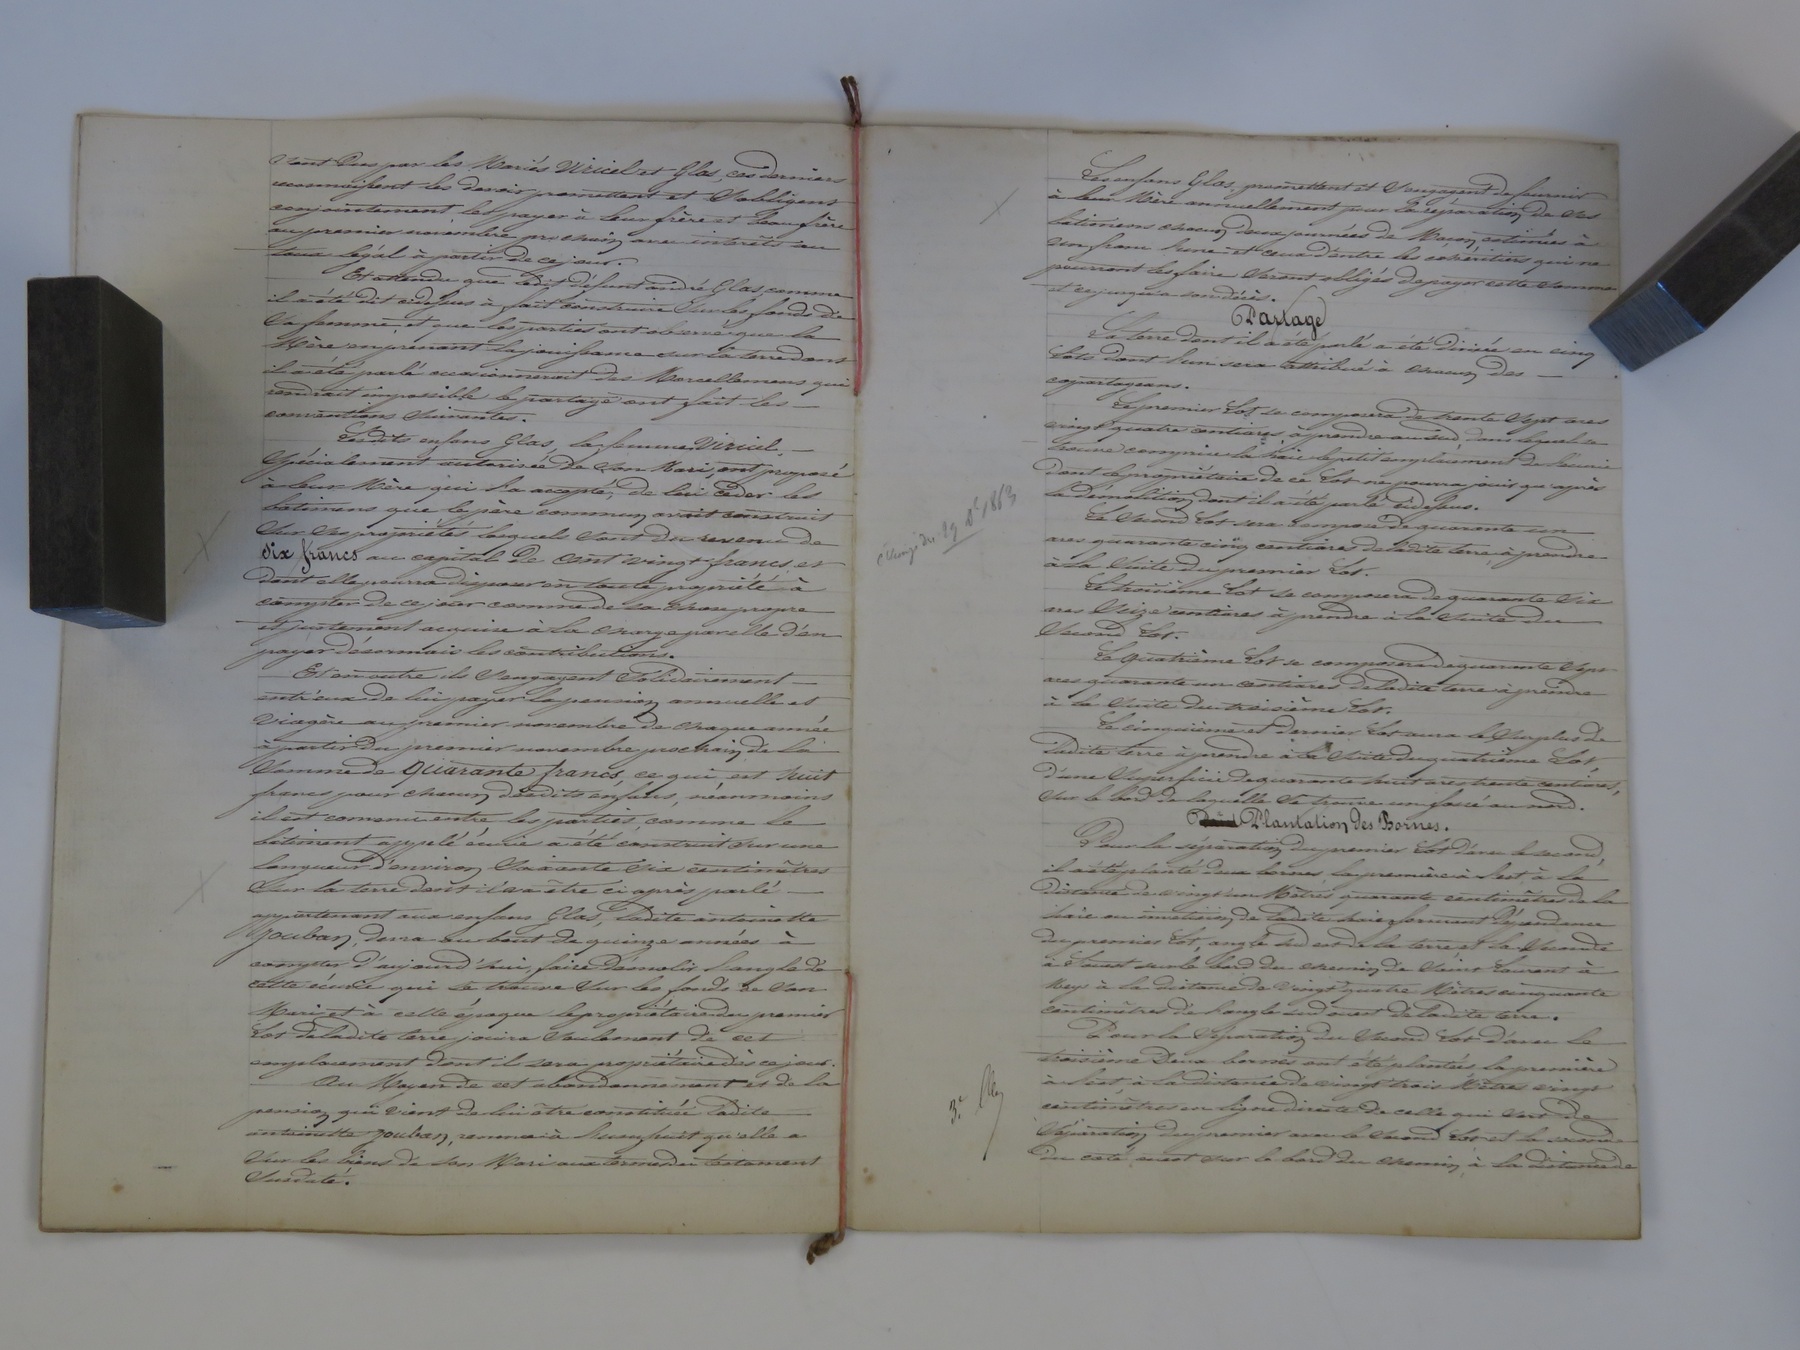 sont dues par les Mariés Viricel et Glas, ces derniers
reconnaissent les devoir promettent et s'obligent
conjointement, les payer à leur frère et beau frère
au premier novembre prochain, avec intérêts au
taux légal à partir de ce jour.
Et attendu que ledit défunt andré Glas, comme
il a été dit ci dessus à fait construire sur les fonds de
sa femme, et que les parties ont observé que la
Mère en prenant la jouissance sur la terre dont
il a été parlé occasionnerait des Morcellemens qui
rendrait impossible le partage ont fait les —
conventions suivantes.
Lesdits enfans Glas, la femme Viricel, —
spécialement autorisée de son Mari, ont proposé
à leur Mère qui l'a accepté, de lui céder les
bâtimens que le père commun avait construit
sur ses propriétés lesquels sont du revenu de
six francs au capital de cent vingt francs, et
dont elle pourra disposer en toute propriété à
compter de ce jour comme de sa chose propre
et justement acquise à la charge par elle d'en
payer désormais les contributions.
Et en outre ils s'engagent solidairement —
entr'eux de lui payer la pension annuelle et
viagère au premier novembre de chaque année
à partir du premier novembre prochain, de la
somme de quarante francs, ce qui est huit
francs pour chacun desdits enfans, néanmoins
il est convenu entre les parties, comme le
bâtiment appelé écurie a été construit sur une
longueur d'environ soixante six centimètres
sur la terre dont il va être ci après parlé —
appartenant aux enfans Glas, ladite antoinette
Jouban, devra au bout de quinze années à
compter d'aujourd'hui, faire démolir l'angle de
cette écurie qui se trouve sur les fonds de son
Mari et à cette époque le propriétaire du premier
Lot de ladite terre jouira seulement de cet
emplacement dont il sera propriétaire dès ce jour.
Au Moyen de cet abandonnement et de la
pension qui vient de lui être constituée ladite —
antoinette Jouban, renonce à l'usufruit qu'elle a
sur les biens de son Mari aux termes du testament
susdaté.
Les enfans Glas, promettent et s'engagent de fournir
à leur Mère annuellement pour la réparation de ses
bâtimens chacun deux journées de Maçon, estimées à
un franc l'une et ceux d'entre les cohéritiers qui ne
pourront les faire seront obligés de payer cette somme
et ce jusqu'à son décès.
Partage
La terre dont il a été parlé a été divisée en cinq
Lots dont l'un sera attribué à chacun des —
copartageans.
Le premier Lot se composera de trente sept ares
vingt quatre centiares, à prendre au sud, dans lequel se
trouve comprise la haie le petit emplacement de l'écurie
dont le propriétaire de ce Lot ne pourra jouir qu'après
la démolition, dont il a été parlé ci dessus.
Le second Lot sera composé de quarante un
ares quarante cinq centiares de ladite terre, à prendre
à la suite du premier Lot.
Le troisième Lot se composera de quarante six
ares seize centiares à prendre à la suite du
second Lot.
Le quatrième Lot se composera de quarante sept
ares quarante un centiares de ladite terre à prendre
à la suite du troisième Lot.
Le cinquième et dernier Lot aura le surplus de
ladite terre à prendre à la suite du quatrième Lot,
d'une superficie de quarante huit ares trente centiares,
sur le bord de laquelle se trouve un fossé au nord.
Plantation des Bornes.
Pour la séparation du premier Lot d'avec le second,
il a été planté deux bornes, la première à l'est à la
distance de vingt un Mètres quarante centimètres de la
haie ou imitation de ladite haie formant dépendance
du premier Lot, angle sud est de la terre et la seconde
à l'ouest sur le bord du chemin de Saint Laurent à
Meys à la distance de vingt quatre Mètres cinquante
centimètres de l'angle sud ouest de ladite terre.
Pour la séparation du second Lot d'avec le
troisième deux bornes ont été plantées la première
à l'est, à la distance de vingt trois Mètres vingt
centimètres en ligne directe de celle qui sert de
séparation du premier avec le second Lot et la seconde
du coté ouest sur le bord du chemin, à la distance de
du 29 1863
3.e